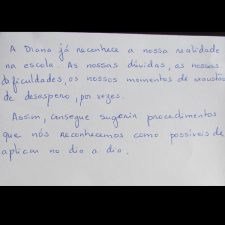 A Diana já reconhece a nossa realidade
na escola. As nossas dúvidas, as nossas
dificuldades, os nossos momentos de exaustão
de desespero, por vezes.
Assim, consegue sugerir procedimentos
que nós reconhecemos como possíveis de
aplicar no dia a dia.